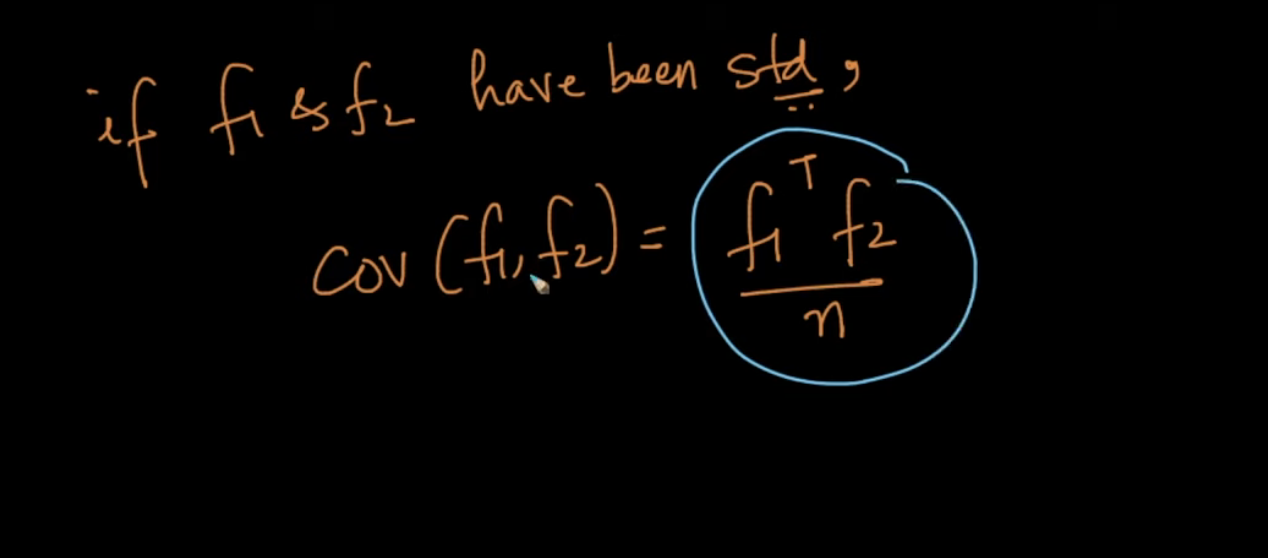 if f₁ & f₂ have been std,
cov (f₁, f₂) = f₁ᵀ f₂
n